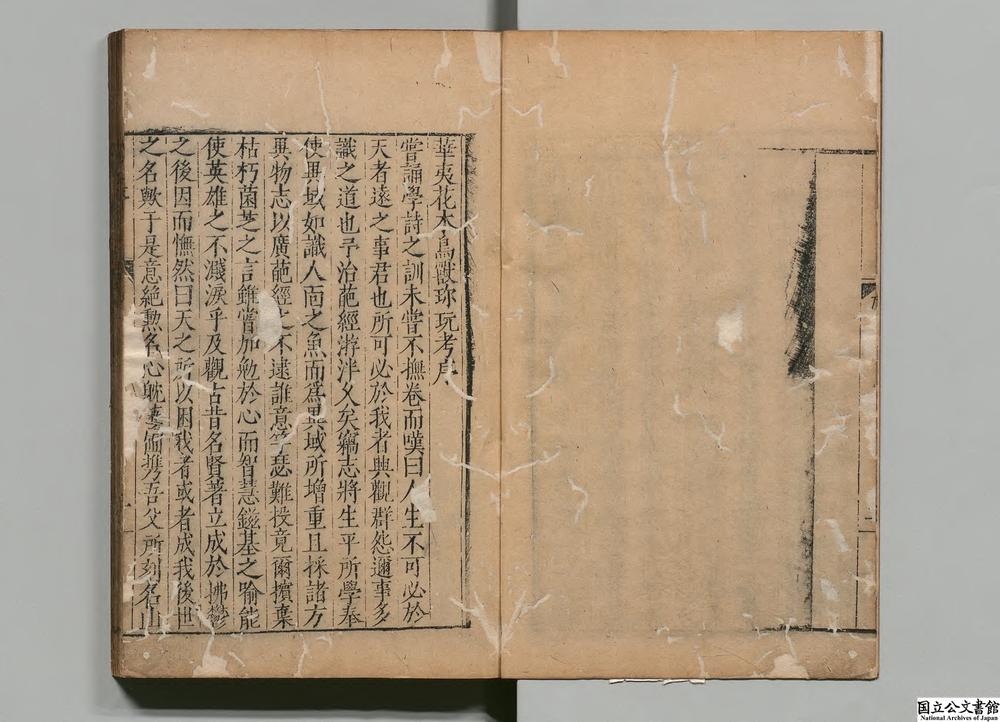 華夷花木鳥獸珎玩考序
嘗誦學詩之訓未嘗不撫卷而嘆曰人生不可必於
天者遠之事君也所可必於我者興觀群怨邇事多
識之道也予治葩經游泮乂矣竊志將生平所學奉
使異域如識人面之魚而爲異域所增重且採諸方
異物志以廣葩經之不逮誰意竽瑟難投竟爾擯棄
枯朽菌芝之言雖嘗加勉於心而智慧鎡基之喻能
使英雄之不濺淚乎及觀古昔名賢著立成於拂鬱
之後因而憮然曰天之所以困我者或者成我後世
之名歟于是意絶勲名心躭著攜吾父所刻名山
國立公文書館
National Archives of Japan